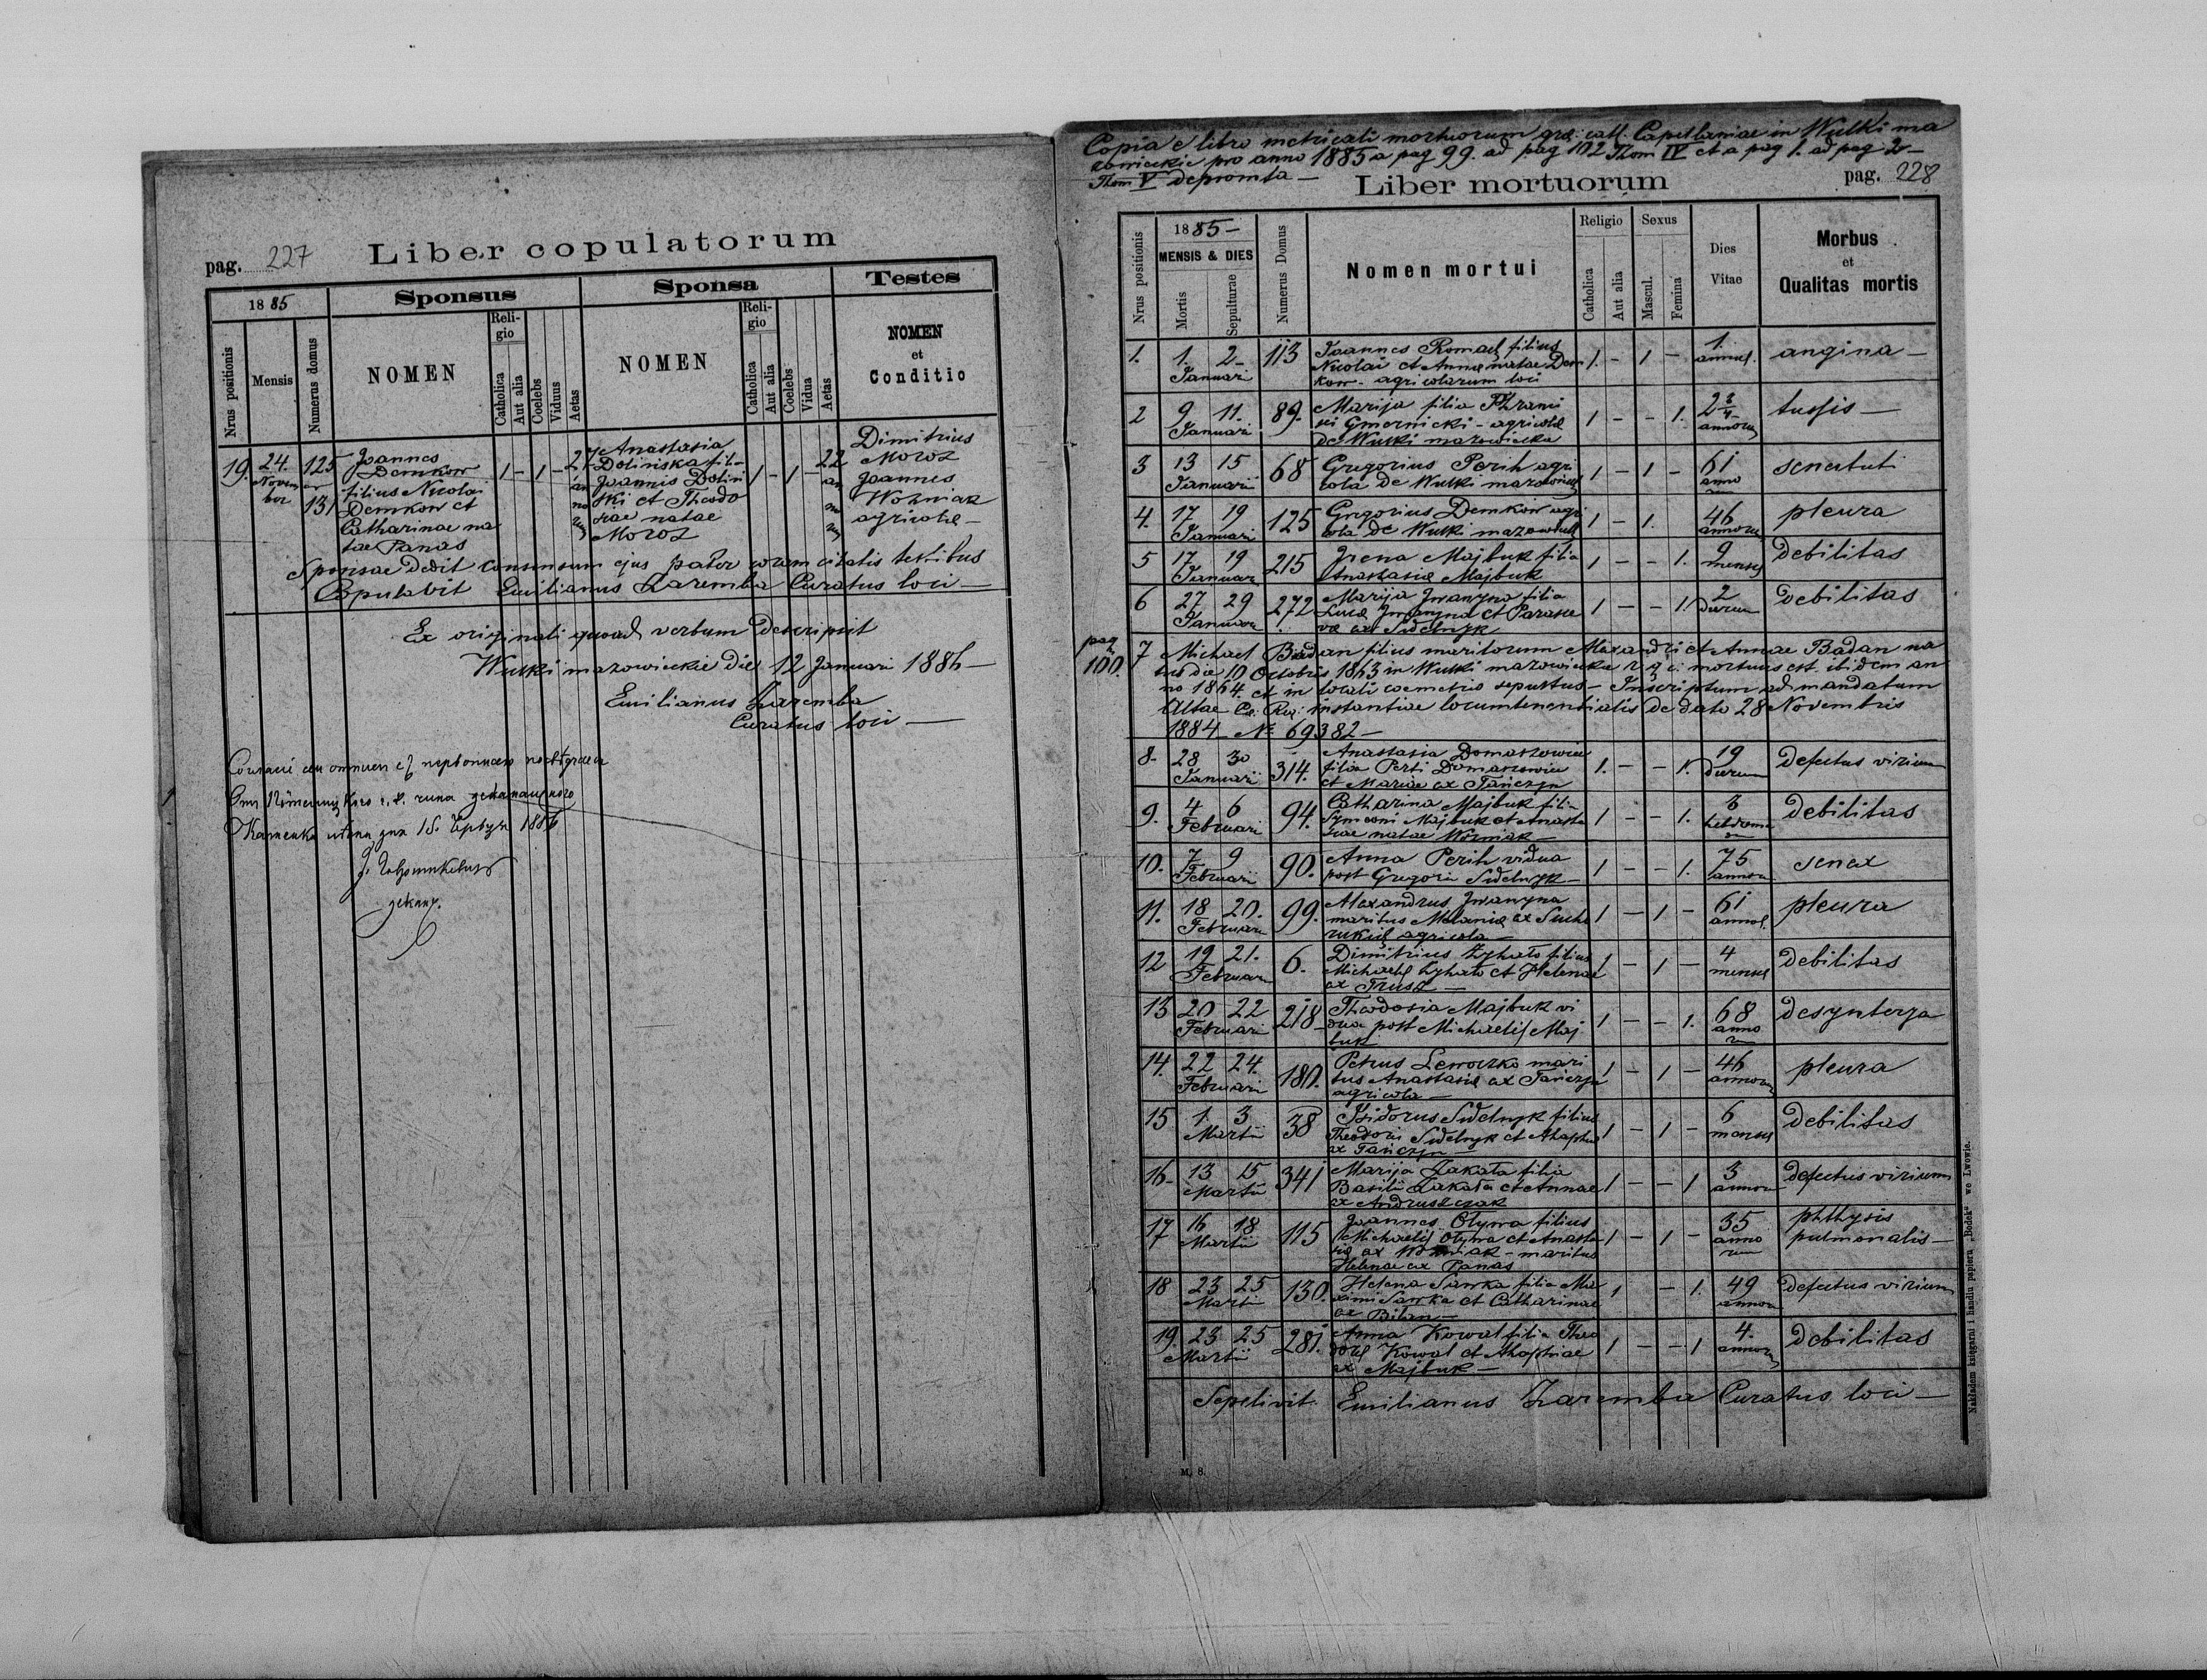 pag. 227 Liber copulatorum
1885 Sponsus Sponsa Testes
Nrus positionis Mensis Numerus domus NOMEN Religio Catholica Aut alia Coelebs Viduus Aetas NOMEN Religio Catholica Aut alia Coelebs Vidua Aetas NOMEN et Conditio
19. 24. November
125 et 131
Joannes
Demkow
filius Nicolai
Demkow et
Catharinae na
tae Panas
1 - 1 - 27 annorum
Anastasia
Doliniska fil-
Joannis Dolini
ski et Theodo
rae natae
Moroz
1 - 1 - 22 annorum
Dimitrius
Moroz
Joannes
Wozniak
agricolae -
Sponsae dedit consensum ejus pater coram citatis testibus
Copulavit Emilianus Zaremba Curatus loci -
Ex originali quoad verbum descripsit
Wulki mazowieckie die 12 Januari 1886 -
Emilianus Zaremba
Curatus loci -
1886
Copia e libro metricali mortuorum gr: cath. Capellaniae in Wulki ma
zowieckie pro anno 1885 a pag 99. ad pag 102 Thom IV et a pag 1. ad pag 2 -
Thom V depromta -
Liber mortuorum pag. 228
Nrus positionis 1885 - MENSIS & DIES Mortis Sepulturae Numerus Domus Nomen mortui Religio Catholica Aut alia Sexus Mascul. Femina Dies Vitae Morbus et Qualitas mortis
1. 1. 2 Januari 113 Joannes Romach filius
Nicolai et Annae natae Dem
kow - agricolarum loci
1. - 1 - 1 annus. angina -
2 9 11. Januari 89. Marija filia
Gmernicki - agricolae
de Wulki mazowiecke
1 - - 1. 2 3/4 annorum tussis -
3 13 15 Januarii 68 Gregorius Perih agri
cola de Wulki mazowieck
1 - 1 - 61 annorum senectuti
4. 17 19 Januari 125 Gregorius Demkow agri
cola de Wulki mazowieck
1 - 1. 46 annorum pleura
5 17 19 Januari 215 Irena Majbuk filia
Anastasiae Majbuk
1 - - 1. 9 menses debilitas
6 27 29 Januari 272 Marija Iwanyna filia
Lucae Iwanyna et Paraske
vae ex Sidelnyk
1 - - 1. 2 dierum debilitas
pag 100.
7 Michael Badan filius maritorum Alexandri et Annae Badan na
tus die 10 Octobris 1863 in Wulki mazowiecke mortuus est ibidem an
no 1864. et in locali coemetrio sepultus - Inscriptum ad mandatum
Altae Cs. Reg: instantiae locumtenentialis de dato 28 Novembris
1884 No 69382 -
8. 28 30 Januarii 314. Anastasia Domaszowiec
filia Petri Domaszowiec
et Mariae ex Tańczyn
1. - - 1. 19 dierum defectus virium
9. 4 6 Februari 94. Catharina Majbuk fili-
Symeoni Majbuk et Anasta
siae natae Wozniak -
1 - - 1. 3 hebdoma debilitas
10. 7 9 Februarii 90. Anna Perih vidua
post Gregorii Sidelnyk -
1 - - 1. 75 annorum senex
11. 18 20. Februari 99. Alexandrus Iwanyna
maritus Melaniae ex Sucho
agricola -
1 - 1 - 61 pleura
12 19 21. Februari 6. Dimitrius Zyhalo filius
Michaelis Zyhalo et Helenae
ex Trusz -
1 - 1 - 4 menses debilitas
13 20 22 Februari 218 Theodosia Majbuk vi
dua post Michaelis Maj
buk
1 - - 1. 68 annorum desynterya
14. 22 24. Februari 180. Petrus Lewoczko mari
tus Anastasiae ex Tańczyn
agricola -
1 - 1 - 46 annorum pleura
15 1. 3 Martii 38 Isidorus Sidelnyk filius
Theodori Sidelnyk et Ahaphiae
ex Tańczyn -
1 - 1 - 6 menses debilitas
16- 13 15 Martii 341 Marija Zakata filia
Basilii Zakata et Annae
ex Andruszczak
1 - - 1 3 annorum defectus virium
17 16 18 Martii 115 Joannes Olywa filius
Michaelis Olywa et Anasta
siae ex Wozniak - maritus
Helenae ex Panas
1 - 1 - 35 annorum phthysis
pulmonalis -
18 23 25 Martii 130. Helena Sawka filia Ma
ximi Sawka et Catharinae
ex Bilan -
1 - 1. 49 annorum defectus virium
19. 23 25 Martii 281. Anna Kowal filia Theo
dori Kowal et Ahaphiae
ex Majbuk -
1 - - 1 4. annorum debilitas
Sepelivit Emilianus Zaremba Curatus loci -
M. 8.
Nakładem księgarni i handlu papieru „Bodek“ we Lwowie.